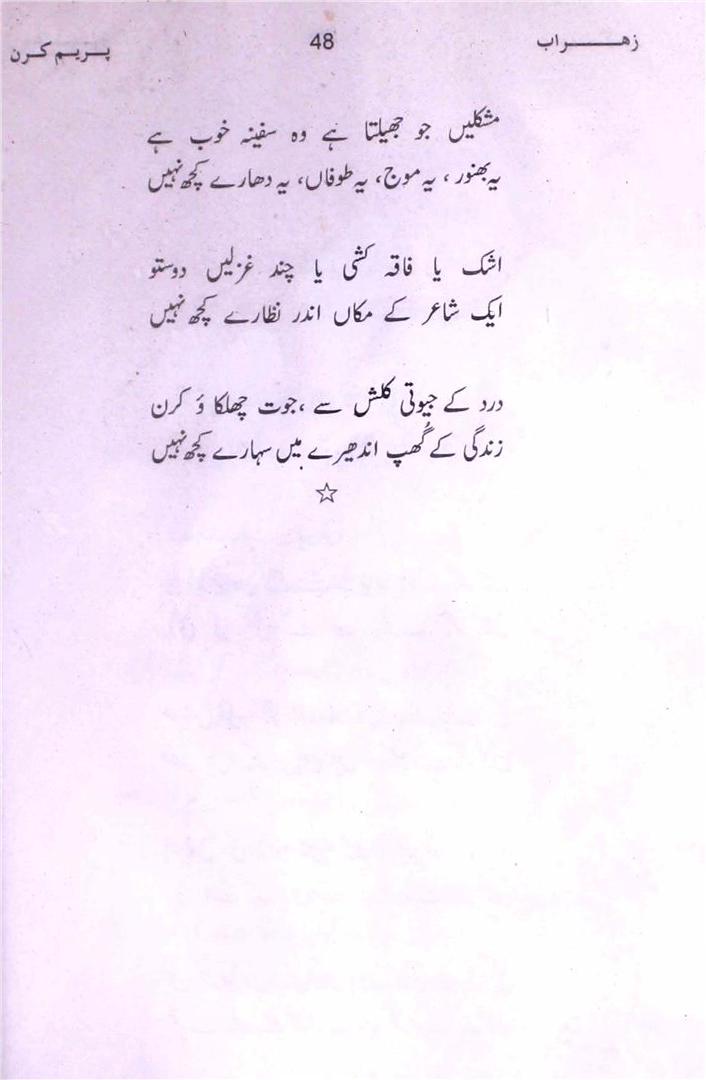 زهراب 48 پریم کرن
مشکلیں جو جھیلتا ہے وہ سفینہ خوب ہے
یہ بھنور ، یہ موج، یہ طوفاں، یہ دھارے کچھ نہیں
اشک یا فاقہ کشی یا چند غزلیں دوستو
ایک شاعر کے مکاں اندر نظارے کچھ نہیں
درد کے جیوتی کلش سے ، جوت چھلکا ؤ کرن
زندگی کے گُھپ اندھیرے میں سہارے کچھ نہیں
☆